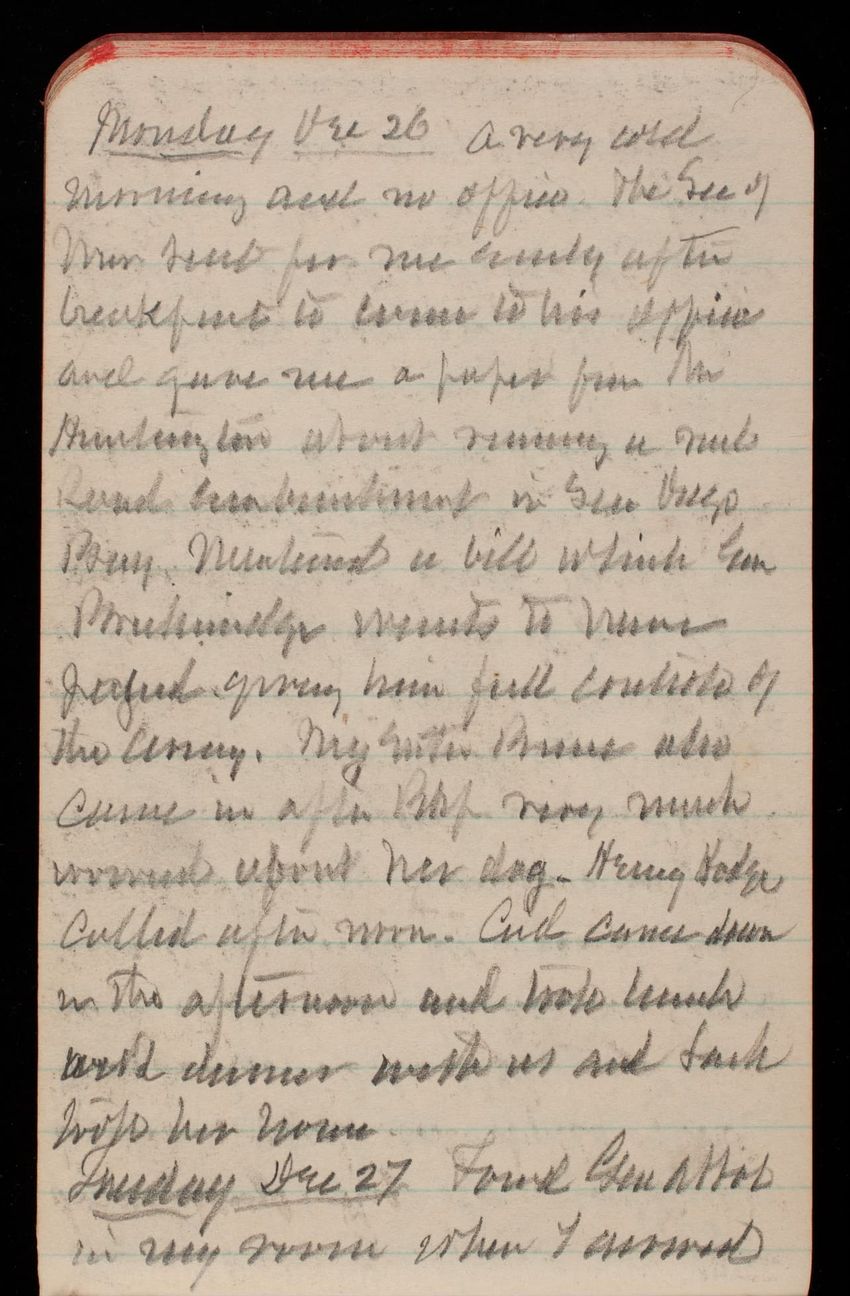 Monday Dec 26 A very cold
morning and no office. The Sec of
War sent for me early after
breakfast to come to his office
and gave me a paper from Mr
Huntington about running a rail
Road embankment in San Diego
Bay. Mentioned a bill which Gen
Breckinridge wants to have
passed giving him full control of
the Army. My sister also
came in after Bkf very much
worried about her dog. Henry Hodge
called after noon. Cad came down
in the afternoon and took lunch
and dinner with us and Jack
took her home
Tuesday Dec 27 Found Gen Abbot
in my room when I arrived